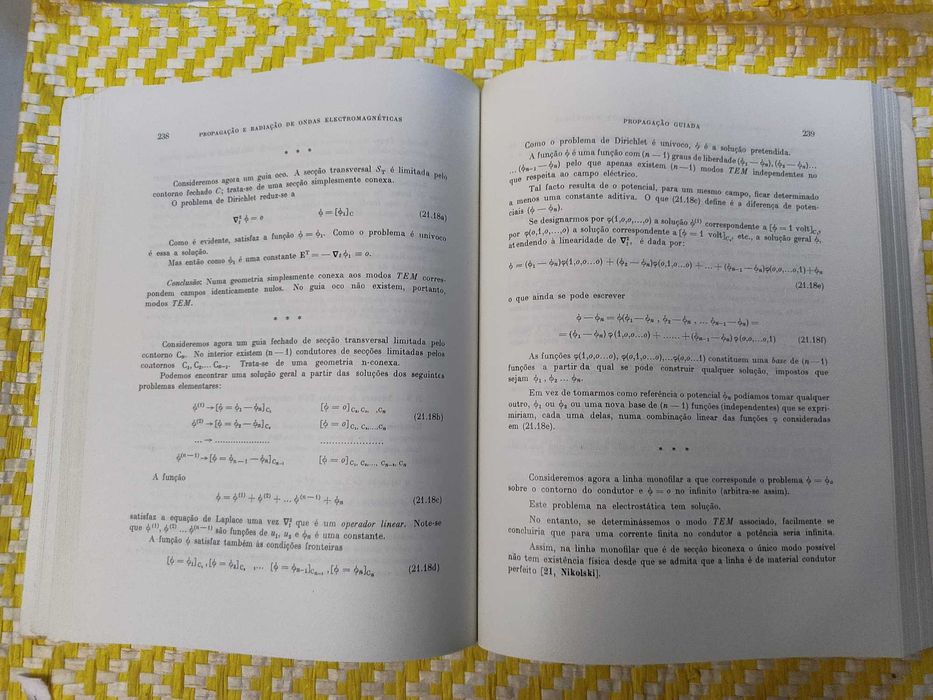 238
PROPAGAÇÃO E RADIAÇÃO DE ONDAS ELECTROMAGNÉTICAS
* * *
Consideremos agora um guia oco. A secção transversal S_T é limitada pelo
contorno fechado C; trata-se de uma secção simplesmente conexa.
O problema de Dirichlet reduz-se a
∇²ₜ ϕ = o ϕ = [ϕ₁]_C (21.18a)
Como é evidente, satisfaz a função ϕ = ϕ₁. Como o problema é unívoco
é essa a solução.
Mas então como ϕ₁ é uma constante Eᵀ = — ∇ₜ ϕ₁ = o.
Conclusão: Numa geometria simplesmente conexa aos modos TEM corres-
pondem campos identicamente nulos. No guia oco não existem, portanto,
modos TEM.
* * *
Consideremos agora um guia fechado de secção transversal limitada pelo
contorno Cₙ. No interior existem (n — 1) condutores de secções limitadas pelos
contornos C₁, C₂,... Cₙ₋₁. Trata-se de uma geometria n-conexa.
Podemos encontrar uma solução geral a partir das soluções dos seguintes
problemas elementares:
ϕ⁽¹⁾ → [ϕ = ϕ₁ — ϕₙ]_C₁ [ϕ = o]_C₂, Cₙ, .. Cₙ
ϕ⁽²⁾ → [ϕ = ϕ₂ — ϕₙ]_C₂ [ϕ = o]_C₁, C₃,...,Cₙ (21.18b)
... → ...................... ......................
ϕ⁽ⁿ⁻¹⁾ → [ϕ = ϕₙ₋₁ — ϕₙ]_Cₙ₋₁ [ϕ = o]_C₁, C₂, ..., Cₙ
A função
ϕ = ϕ⁽¹⁾ + ϕ⁽²⁾ + ... ϕ⁽ⁿ⁻¹⁾ + ϕₙ (21.18c)
satisfaz a equação de Laplace uma vez ∇²ₜ que é um operador linear. Note-se
que ϕ⁽¹⁾, ϕ⁽²⁾ ... ϕ⁽ⁿ⁻¹⁾ são funções de u₁, u₂ e ϕₙ é uma constante.
A função ϕ satisfaz também às condições fronteiras
[ϕ = ϕ₁]_C₁, [ϕ = ϕ₂]_C₂ ,... [ϕ = ϕₙ₋₁]_Cₙ₋₁, [ϕ = ϕₙ]_Cₙ (21.18d)
PROPAGAÇÃO GUIADA
239
Como o problema de Dirichlet é unívoco, ϕ é a solução pretendida.
A função ϕ é uma função com (n — 1) graus de liberdade (ϕ₁ — ϕₙ), (ϕ₂ — ϕₙ)...
... (ϕₙ₋₁ — ϕₙ) pelo que apenas existem (n—1) modos TEM independentes no
que respeita ao campo eléctrico.
Tal facto resulta de o potencial, para um mesmo campo, ficar determinado
a menos uma constante aditiva. O que (21.18c) define é a diferença de poten-
ciais (ϕ — ϕₙ).
Se designarmos por φ(1,o,o,...,o) a solução ϕ⁽¹⁾ correspondente a [ϕ = 1 volt]_C₁,
por φ(o,1,o,...,o) a solução correspondente a [ϕ = 1 volt]_C₂, etc., a solução geral ϕ,
atendendo à linearidade de ∇²ₜ, é dada por:
ϕ = (ϕ₁ — ϕₙ)φ(1,o,o...o) + (ϕ₂ — ϕₙ)φ(o,1,o...o) + ... + (ϕₙ₋₁ — ϕₙ)φ(o,o,...,o,1)+ϕₙ
(21.18e)
o que ainda se pode escrever
ϕ — ϕₙ = ϕ(ϕ₁ — ϕₙ , ϕ₂ — ϕₙ , ... ϕₙ₋₁ — ϕₙ) =
= (ϕ₁ — ϕₙ) φ (1,o,o...o) + ...... + (ϕₙ₋₁ — ϕₙ) φ(o,o,...,o,1) (21.18f)
As funções φ(1,o,o...o), φ(o,1,o...o),...φ(o,o...o,1) constituem uma base de (n — 1)
funções a partir da qual se pode construir qualquer solução, impostos que
sejam ϕ₁ , ϕ₂ ... ϕₙ.
Em vez de tomarmos como referência o potencial ϕₙ podíamos tomar qualquer
outro, ϕ₁ ou ϕ₂ ou uma nova base de (n — 1) funções (independentes) que se expri-
miriam, cada uma delas, numa combinação linear das funções φ consideradas
em (21.18e).
* * *
Consideremos agora a linha monofilar a que corresponde o problema ϕ = ϕₐ
sobre o contorno do condutor e ϕ = o no infinito (arbitra-se assim).
Este problema na electrostática tem solução.
No entanto, se determinássemos o modo TEM associado, facilmente se
concluiria que para uma corrente finita no condutor a potência seria infinita.
Assim, na linha monofilar que é de secção biconexa o único modo possível
não tem existência física desde que se admita que a linha é de material condutor
perfeito [21, Nikolski].